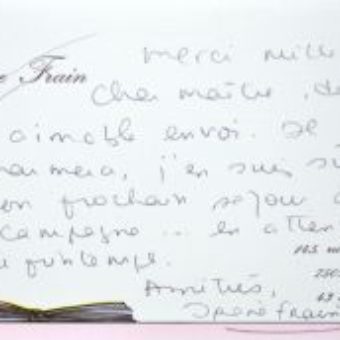 merci mille
e Frain
cher maître, de
aimable envoi. Je
armera, j'en suis s
on prochain séjour
campagne... en atten
printemps.
Amitiés,
Irène Frain